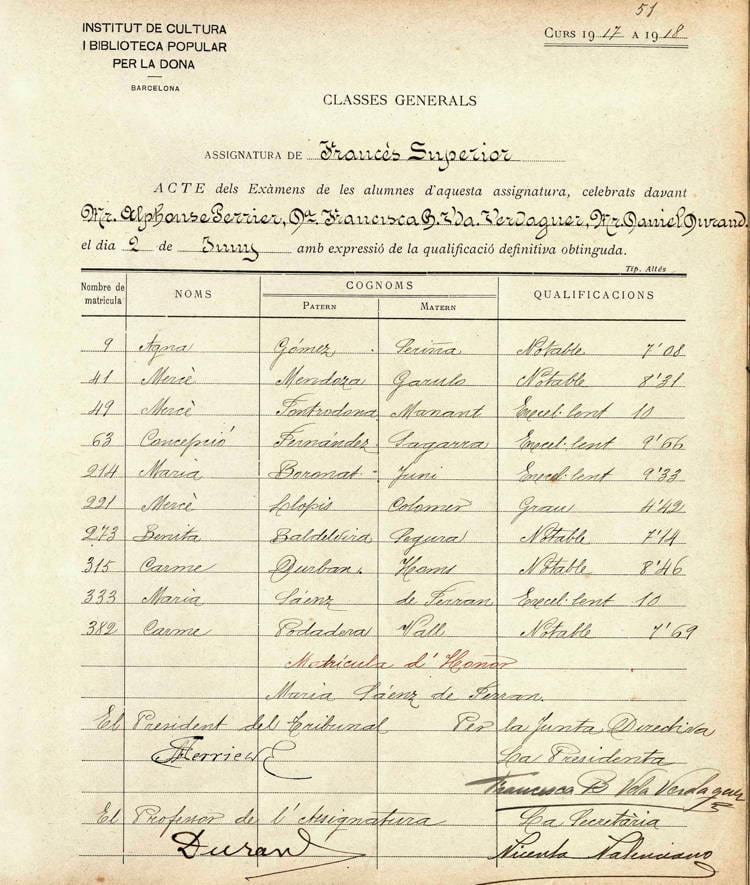 51
INSTITUT DE CULTURA
I BIBLIOTECA POPULAR
PER LA DONA
BARCELONA
CURS 1917 A 1918
CLASSES GENERALS
ASSIGNATURA DE Francés Superior
ACTE dels Exàmens de les alumnes d'aquesta assignatura, celebrats davant
Mr. Alphonse Perrier, Da. Francisca B. Vda. Verdaguer, Mr. Daniel Durand.
el dia 2 de Juny amb expressió de la qualificació definitiva obtinguda.
Tip. Altés
Nombre de matrícula NOMS COGNOMS QUALIFICACIONS
PATERN MATERN
9 Agna Gómez Periña Notable 7'08
41 Mercè Mendoza Garulo Notable 8'31
49 Mercè Fontrodona Manant Excel·lent 10
63 Concepció Fernández Sagarra Excel·lent 9'66
214 Maria Boronat Juni Excel·lent 9'33
221 Mercè Llopis Colomer Grau 4'42
273 Benita Segura Notable 7'14
315 Carme Durban. Homs Notable 8'46
333 Maria Sáenz de Ferran Excel·lent 10
382 Carme Podadera Vall Notable 7'69
Matrícula d'Honor
Maria Sáenz de Ferran.
El President del Tribunal Per la Junta Directiva
La Presidenta
Francesca B Vda Verdaguer
El Professor de l'Assignatura La Secretària
Durand Vicenta Valenciano